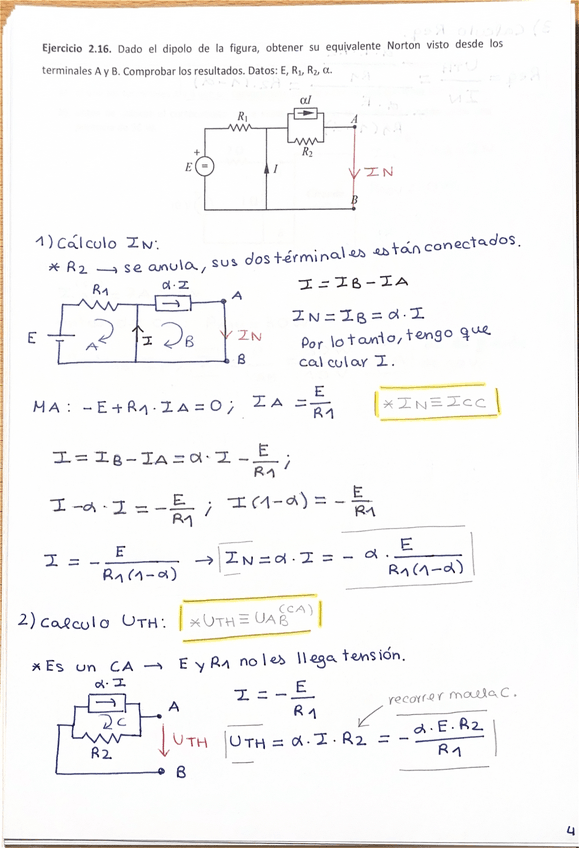 Ejercicio 2.16. Dado el dipolo de la figura, obtener su equivalente Norton visto desde los
terminales A y B. Comprobar los resultados. Datos: E, R₁, R₂, α.
αI
R₁
A
R₂
+
E
=
I
IN
B
1) Cálculo IN:
* R2 → se anula, sus dos términales están conectados.
R1
α·I
A
I = IB - IA
E
A
I
B
IN
IN = IB = α·I
Por lo tanto, tengo que
B
calcular I.
MA: -E + R1·IA = 0; IA = E/R1
* IN ≡ ICC
I = IB - IA = α·I - E/R1;
I - α·I = - E/R1; I(1-α) = - E/R1
I = - E/R1(1-α) → IN = α·I = - α· E/R1(1-α)
2) Calculo UTH:
* UTH ≡ UAB(CA)
* Es un CA → E y R1 no les llega tensión.
α·I
A
I = - E/R1
recorrer malla C.
C
R2
UTH
UTH = α·I·R2 = - α·E·R2/R1
B
4